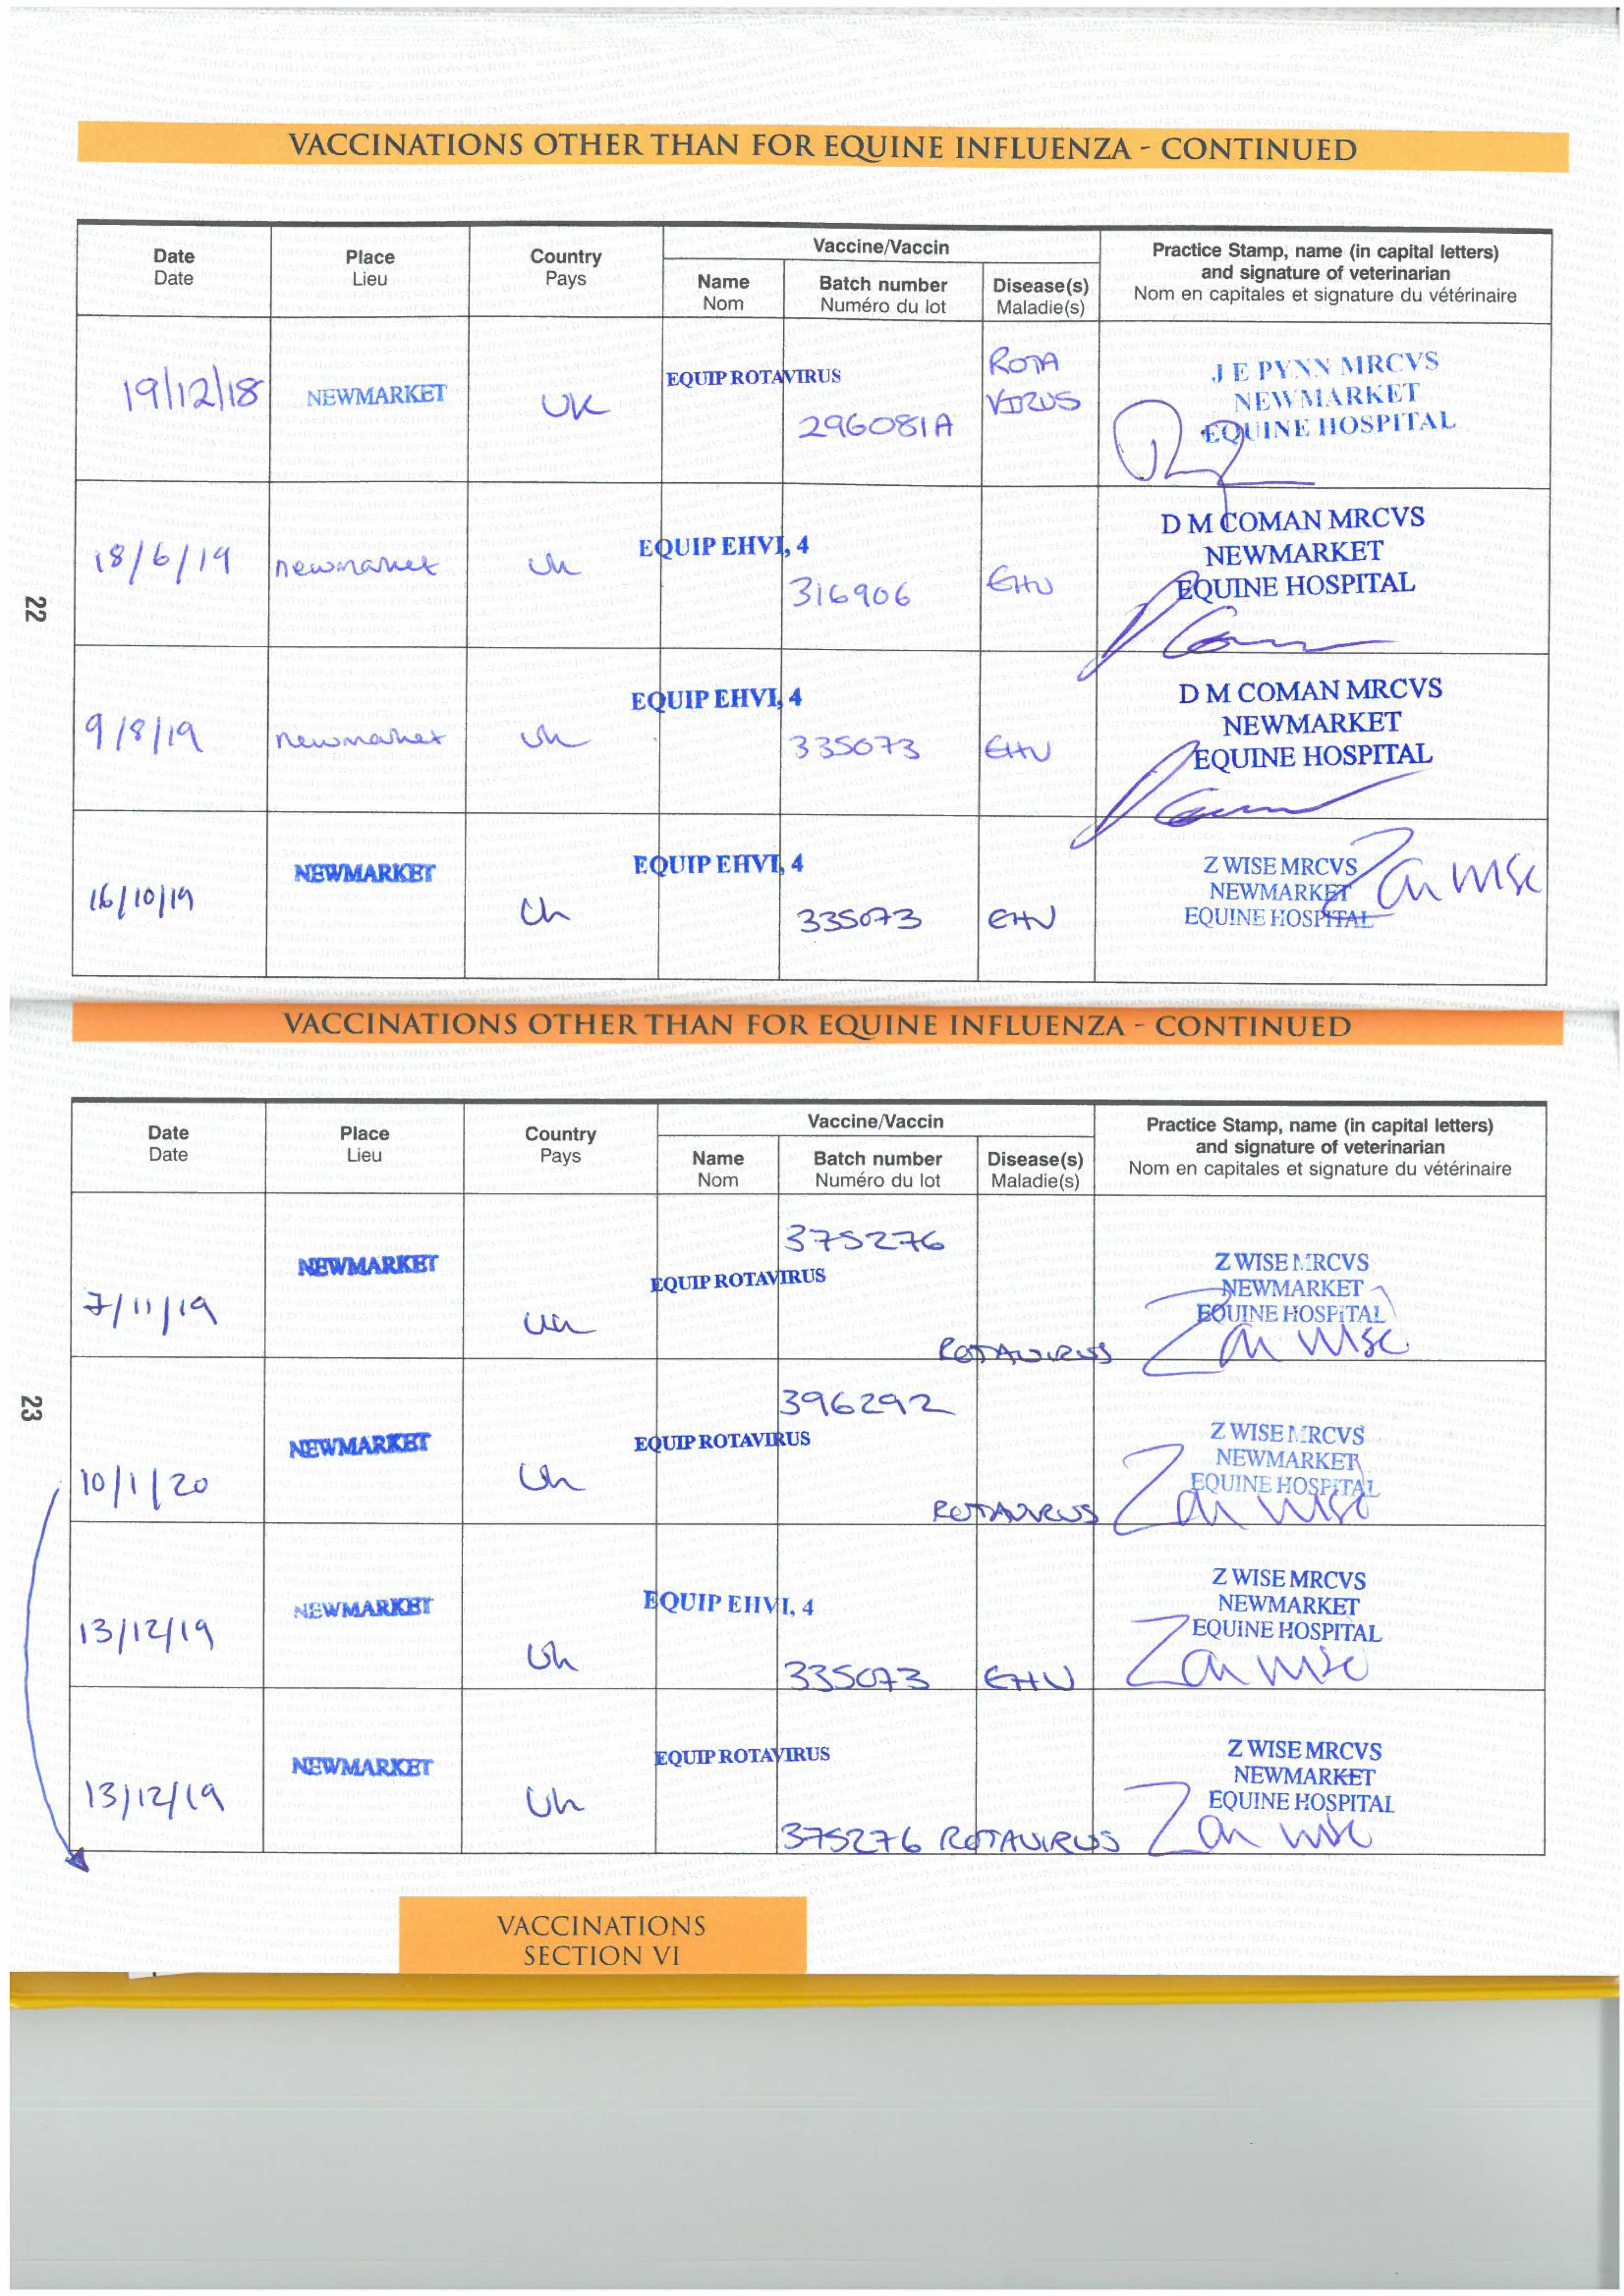 VACCINATIONS OTHER THAN FOR EQUINE INFLUENZA - CONTINUED
Date
Date
Place
Lieu
Country
Pays
Vaccine/Vaccin
Name
Nom
Batch number
Numéro du lot
Disease(s)
Maladie(s)
Practice Stamp, name (in capital letters)
and signature of veterinarian
Nom en capitales et signature du vétérinaire
19/12/18
NEWMARKET
UK
EQUIP ROTAVIRUS
296081A
ROTA
VIRUS
J E PYNN MRCVS
NEWMARKET
EQUINE HOSPITAL
18/6/19
newmarket
Uk
EQUIP EHV1, 4
316906
EHV
D M COMAN MRCVS
NEWMARKET
EQUINE HOSPITAL
22
9/8/19
newmarket
Uk
EQUIP EHV1, 4
335073
EHV
D M COMAN MRCVS
NEWMARKET
EQUINE HOSPITAL
16/10/19
NEWMARKET
Uk
EQUIP EHV1, 4
335073
EHV
Z WISE MRCVS
NEWMARKET
EQUINE HOSPITAL
VACCINATIONS OTHER THAN FOR EQUINE INFLUENZA - CONTINUED
Date
Date
Place
Lieu
Country
Pays
Vaccine/Vaccin
Name
Nom
Batch number
Numéro du lot
Disease(s)
Maladie(s)
Practice Stamp, name (in capital letters)
and signature of veterinarian
Nom en capitales et signature du vétérinaire
7/11/19
NEWMARKET
Uk
EQUIP ROTAVIRUS
375276
ROTAVIRUS
Z WISE MRCVS
NEWMARKET
EQUINE HOSPITAL
23
10/1/20
NEWMARKET
Uk
EQUIP ROTAVIRUS
396292
ROTAVIRUS
Z WISE MRCVS
NEWMARKET
EQUINE HOSPITAL
13/12/19
NEWMARKET
Uk
EQUIP EHV1, 4
335073
EHV
Z WISE MRCVS
NEWMARKET
EQUINE HOSPITAL
13/12/19
NEWMARKET
Uk
EQUIP ROTAVIRUS
375276
ROTAVIRUS
Z WISE MRCVS
NEWMARKET
EQUINE HOSPITAL
VACCINATIONS
SECTION VI